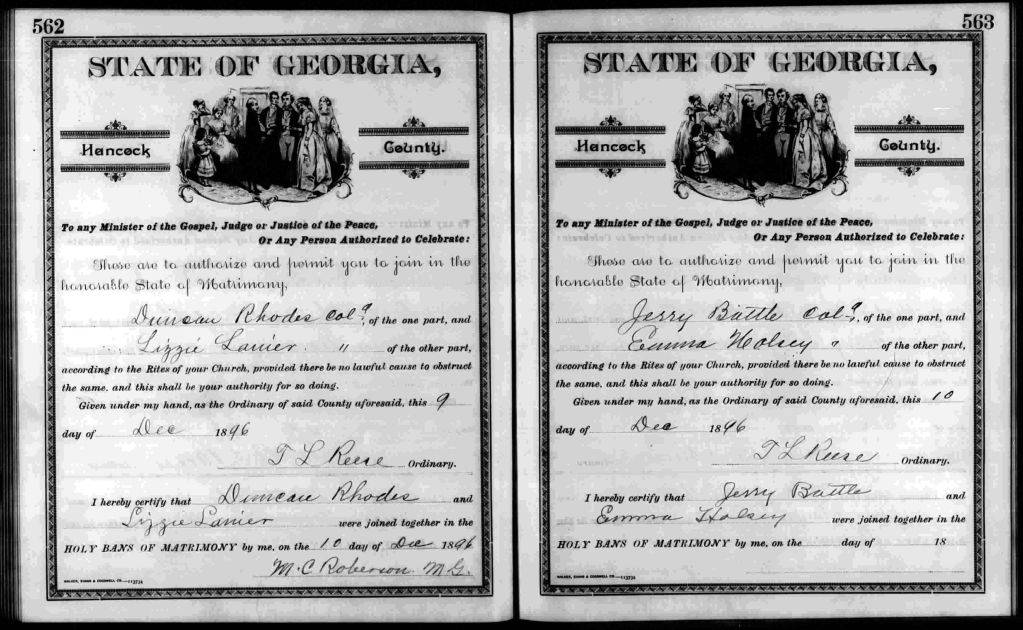 562
STATE OF GEORGIA,
Hancock County.
To any Minister of the Gospel, Judge or Justice of the Peace,
Or Any Person Authorized to Celebrate:
These are to authorize and permit you to join in the
honorable State of Matrimony,
Duncan Rhodes Cold, of the one part, and
Lizzie Lanier " of the other part,
according to the Rites of your Church, provided there be no lawful cause to obstruct
the same, and this shall be your authority for so doing.
Given under my hand, as the Ordinary of said County aforesaid, this 9
day of Dec 1896
T L Reese Ordinary.
I hereby certify that Duncan Rhodes and
Lizzie Lanier were joined together in the
HOLY BANS OF MATRIMONY by me, on the 10 day of Dec 1896
M. C. Roberson M.G.
WALKER, EVANS & COGSWELL CO.—113734
563
STATE OF GEORGIA,
Hancock County.
To any Minister of the Gospel, Judge or Justice of the Peace,
Or Any Person Authorized to Celebrate:
These are to authorize and permit you to join in the
honorable State of Matrimony,
Jerry Battle Cold, of the one part, and
Emma Holsey " of the other part,
according to the Rites of your Church, provided there be no lawful cause to obstruct
the same, and this shall be your authority for so doing.
Given under my hand, as the Ordinary of said County aforesaid, this 10
day of Dec 1896
T L Reese Ordinary.
I hereby certify that Jerry Battle and
Emma Holsey were joined together in the
HOLY BANS OF MATRIMONY by me, on the day of 18
WALKER, EVANS & COGSWELL CO.—113734